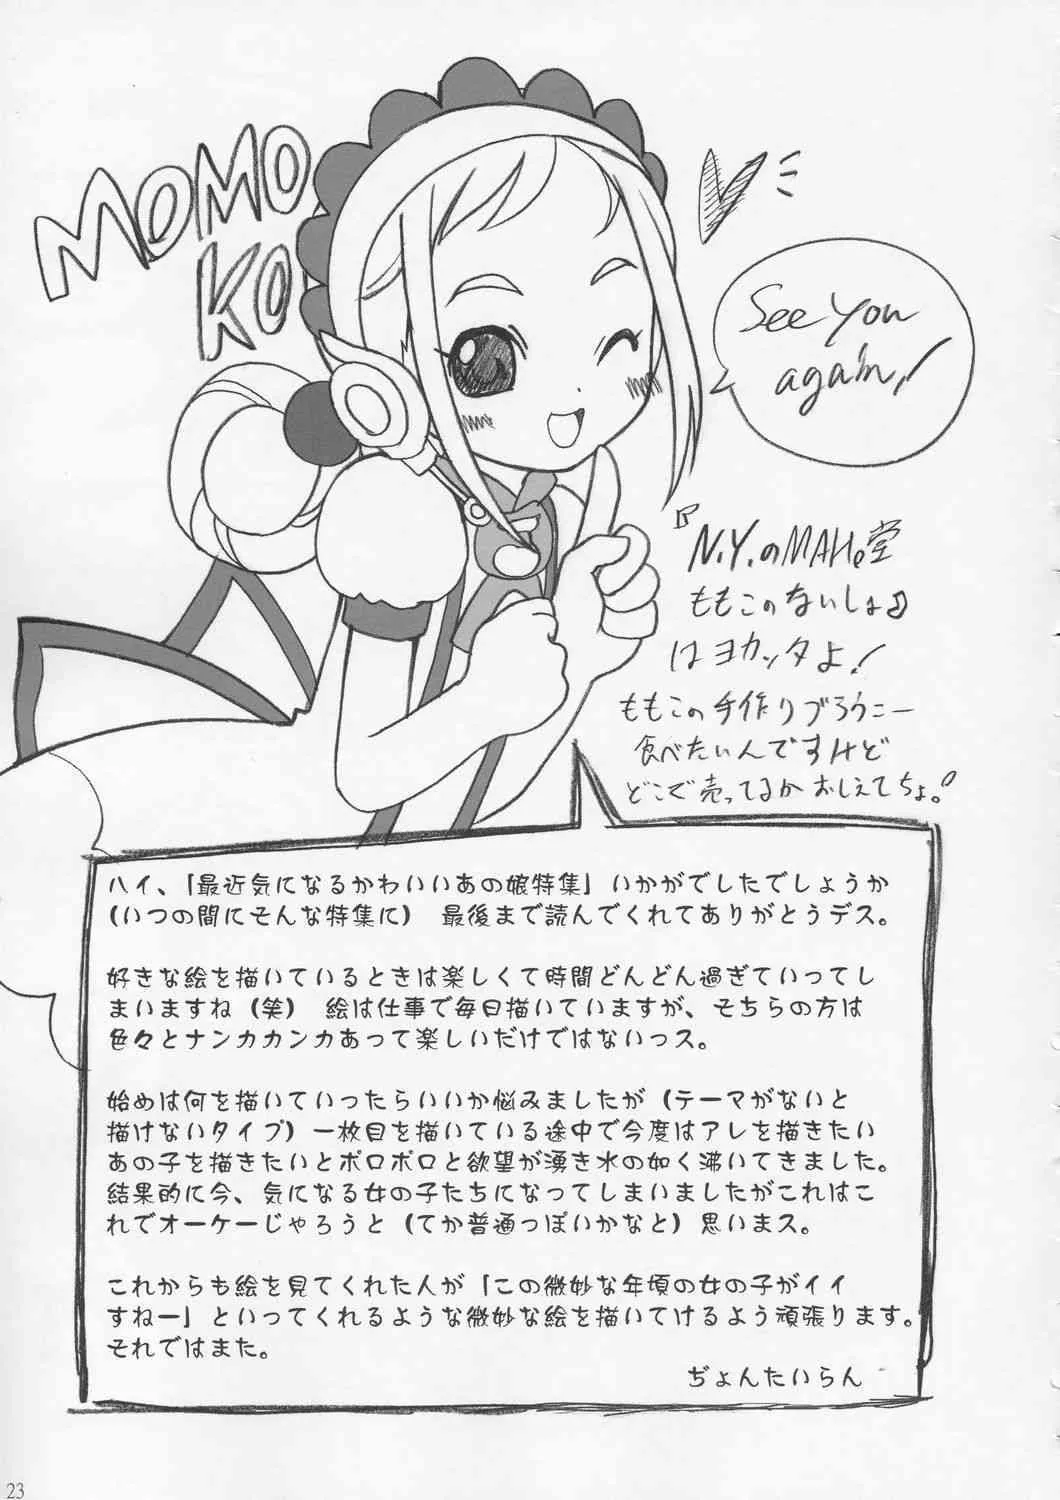 MOMO
KO
See you
again!
『N.Y.のMAHO堂
ももこのないしょ♪
はヨカッタよ!
ももこの手作りブろうニー
食べたいんですけど
どこで売ってるかおしえてちょ。
ハイ、「最近気になるかわいいあの娘特集」いかがでしたでしょうか
(いつの間にそんな特集に) 最後まで読んでくれてありがとうデス。
好きな絵を描いているときは楽しくて時間どんどん過ぎていってし
まいますね(笑) 絵は仕事で毎日描いていますが、そちらの方は
色々とナンカカンカあって楽しいだけではないっス。
始めは何を描いていったらいいか悩みましたが(テーマがないと
描けないタイプ)一枚目を描いている途中で今度はアレを描きたい
あの子を描きたいとポロポロと欲望が湧き水の如く沸いてきました。
結果的に今、気になる女の子たちになってしまいましたがこれはこ
れでオーケーじゃろうと(てか普通っぽいかなと)思いまス。
これからも絵を見てくれた人が「この微妙な年頃の女の子がイイ
すねー」といってくれるような微妙な絵を描いてけるよう頑張ります。
それではまた。
ぢょんたいらん
23